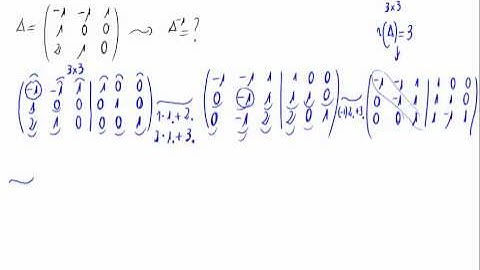 3×3
A = ( -1 -1 1 ; 1 0 0 ; 2 1 0 ) ⤳ A⁻¹ = ?
r(A) = 3
3×3
( -1 -1 1 | 1 0 0 ; 1 0 0 | 0 1 0 ; 2 1 0 | 0 0 1 ) ~ 1·1.+2. 2·1.+3. ( -1 -1 1 | 1 0 0 ; 0 -1 1 | 1 1 0 ; 0 -1 2 | 2 0 1 ) ~ (-1)2.+3. ( -1 -1 1 | 1 0 0 ; 0 -1 1 | 1 1 0 ; 0 0 1 | 1 -1 1 )
~